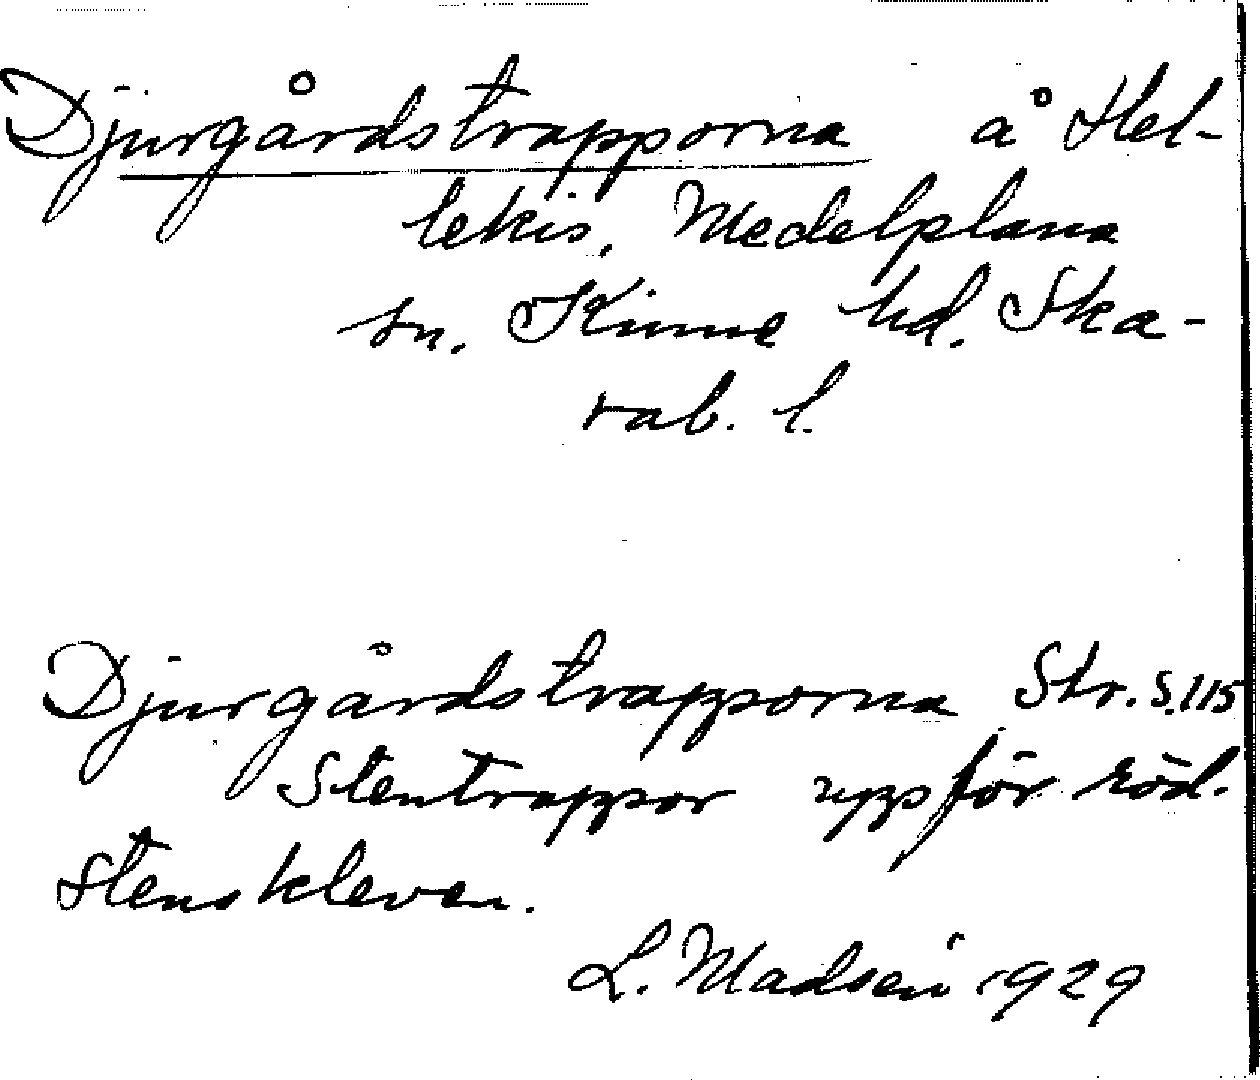 Djurgårdstrapporna å Hel-
lekis, Medelplana
sn. Kinne hd. Ska-
rab. l.
Djurgårdstrapporna Str. S. 115
Stentrappor uppför röd.
stenskleven.
L. Madsén 1929